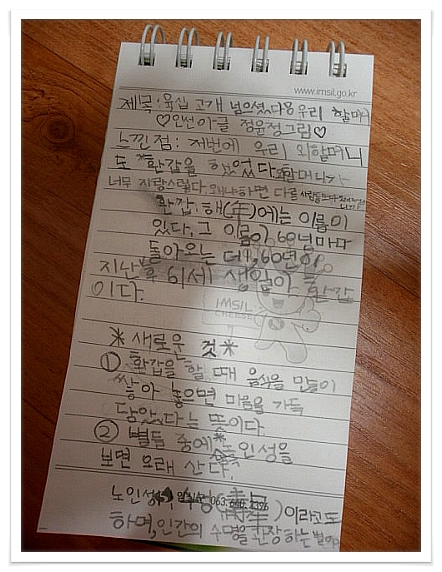 www.imsil.go.kr
제목: 육십 고개 넘으셨다용 우리 할머니
♡인선이글 정윤정그림♡
느낀점: 저번에 우리 외할머니
도 환갑을 했었다. 할머니가
너무 자랑스럽다 왜냐하면 다른 사람들보다
환갑: 해(年)에는 이름이
있다. 그 이름이 60년마다
돌아오는 데, 60년이
지난 후 61세 생일이 환갑
이다.
IMSIL
CHEESE
*새로운 것*
① 환갑을 할 때 음식을 많이
쌓아 놓으면 마음을 가득
담았다는 뜻이다.
② 별들 중에 노인성을
보면 오래 산다.
노인성 수성(壽星)이라고도
063.640.2326
하며, 인간의 수명을 관장하는 별이다